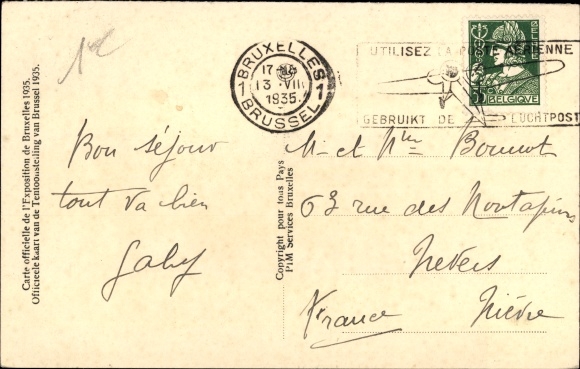 Carte officielle de l'Exposition de Bruxelles 1935.
Officieele kaart van de Tentoonstelling van Brussel 1935.
Bon séjour
tout va bien
Gaby
Copyright pour tous Pays
PIM Services Bruxelles
BRUXELLES
1 1
13 VII
1935
BRUSSEL
UTILISEZ LA POSTE AERIENNE
GEBRUIKT DE LUCHTPOST
35
BELGIQUE
M. et Mme Bonnot
63 rue des
Nevers
France Nièvre